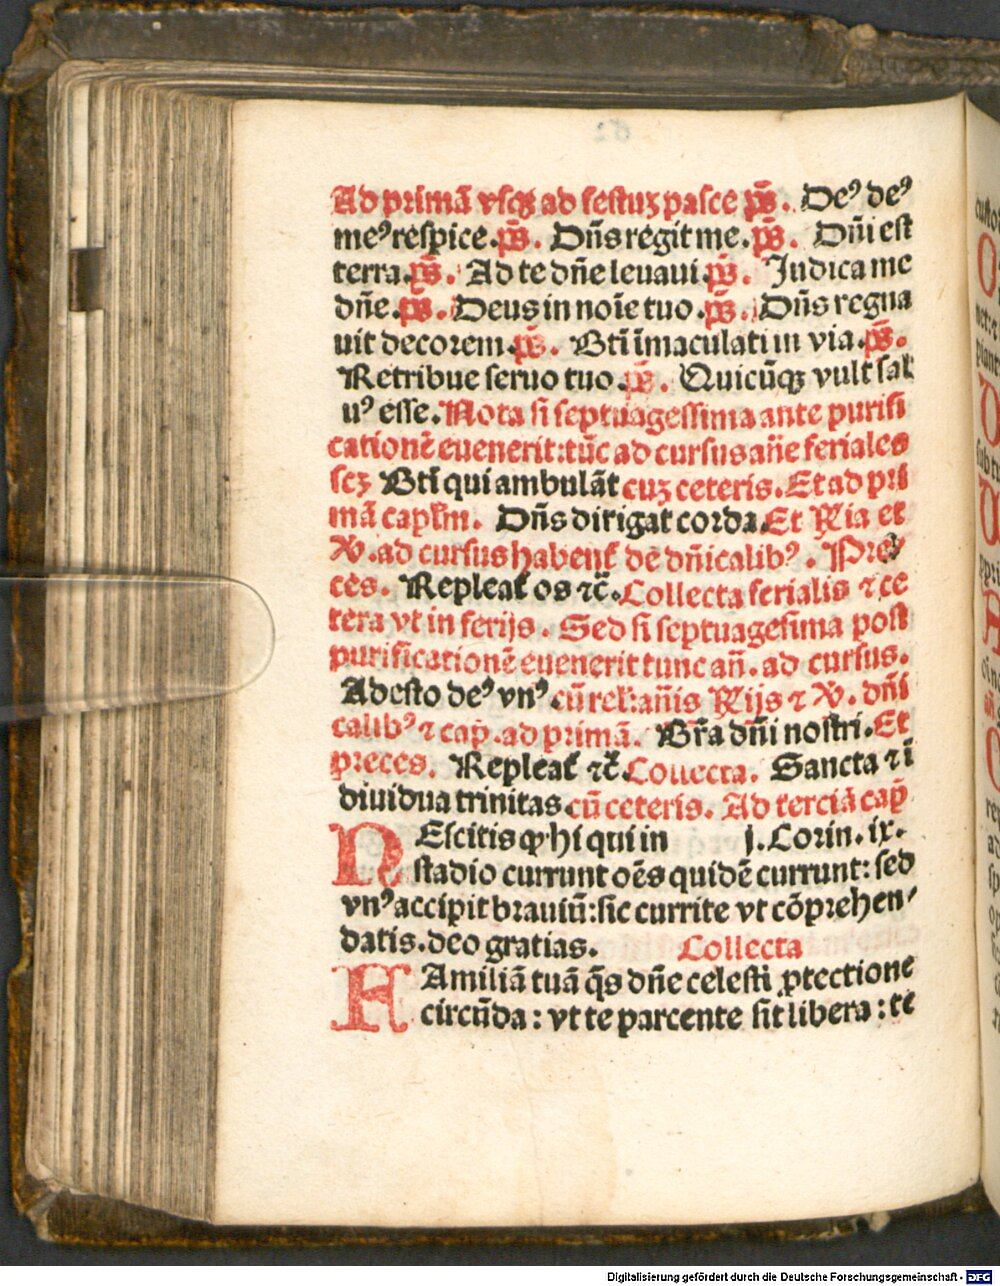 Ad primā vscꝫ ad festuꝫ pasce p̄s. Deꝰ deꝰ
meꝰ respice. p̄s. Dn̄s regit me. p̄s. Dn̄i est
terra. p̄s. Ad te dn̄e leuaui. p̄s. Iudica me
dn̄e. p̄s. Deus in noīe tuo. p̄s. Dn̄s regna
uit decorem. p̄s. Bti īmaculati in via. p̄s.
Retribue seruo tuo. p̄s. Quicūqꝫ vult sal
uꝰ esse. Nota si septuagessima ante purifi
cationē euenerit: tūc ad cursus an̄e feriales
scꝫ Bti qui ambulāt cuꝫ ceteris. Et ad pri
mā cap̄lm. Dn̄s dirigat corda. Et Rꝛia et
Ꝟ. ad cursus habent̄ de dn̄icalibꝰ. Pre
ces. Repleat̄ os ⁊c̄. Collecta ferialis ⁊ ce
tera vt in ferijs. Sed si septuagesima post
purificationē euenerit tunc an̄. ad cursus.
Adesto deꝰ vnꝰ cū rel: an̄is Rꝛijs ⁊ Ꝟ. dn̄i
calibꝰ ⁊ cap̄. ad primā. Gr̄a dn̄i nostri. Et
preces. Repleat̄ ⁊c̄. Collecta. Sancta ⁊ ī
diuidua trinitas cū ceteris. Ad terciā cap̄
NEscitis ꝙ hi qui in j. Corin. ix.
stadio currunt oēs quidē currunt: sed
vnꝰ accipit brauiū: sic currite vt cōprehen
datis. deo gratias. Collecta
FAmiliā tuā q̄s dn̄e celesti ꝓtectione
circūda: vt te parcente sit libera: te
Digitalisierung gefördert durch die Deutsche Forschungsgemeinschaft - DFG